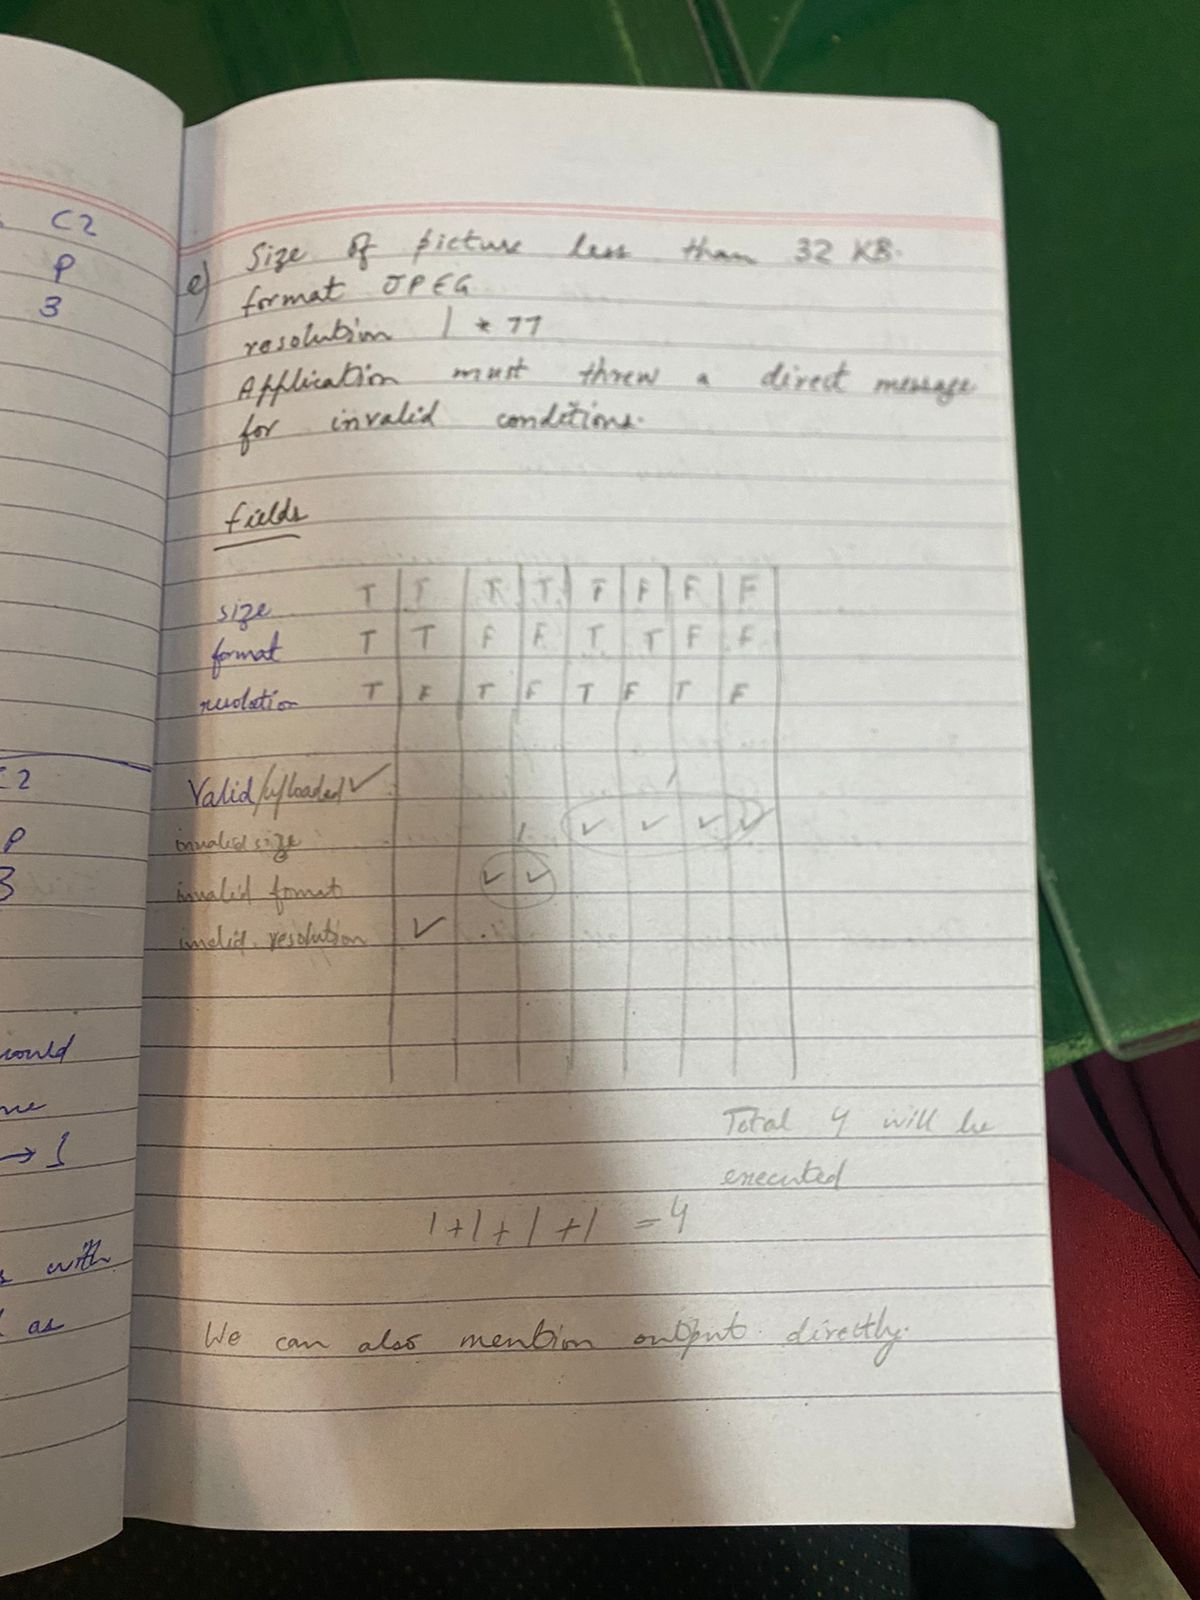 C2
P
3
C2
P
3
would
me
→ 1
with
as
e) Size of picture less than 32 KB.
format JPEG
resolution 1 * 77
Application must threw a direct message
for invalid conditions.
fields
size T T T T F F F F
format T T F F T T F F
resolution T F T F T F T F
Valid/uploaded ✓
invalid size ✓ ✓ ✓ ✓
invalid format ✓ ✓
invalid resolution ✓
Total 4 will be
executed
1+1+1+1 = 4
We can also mention output directly.